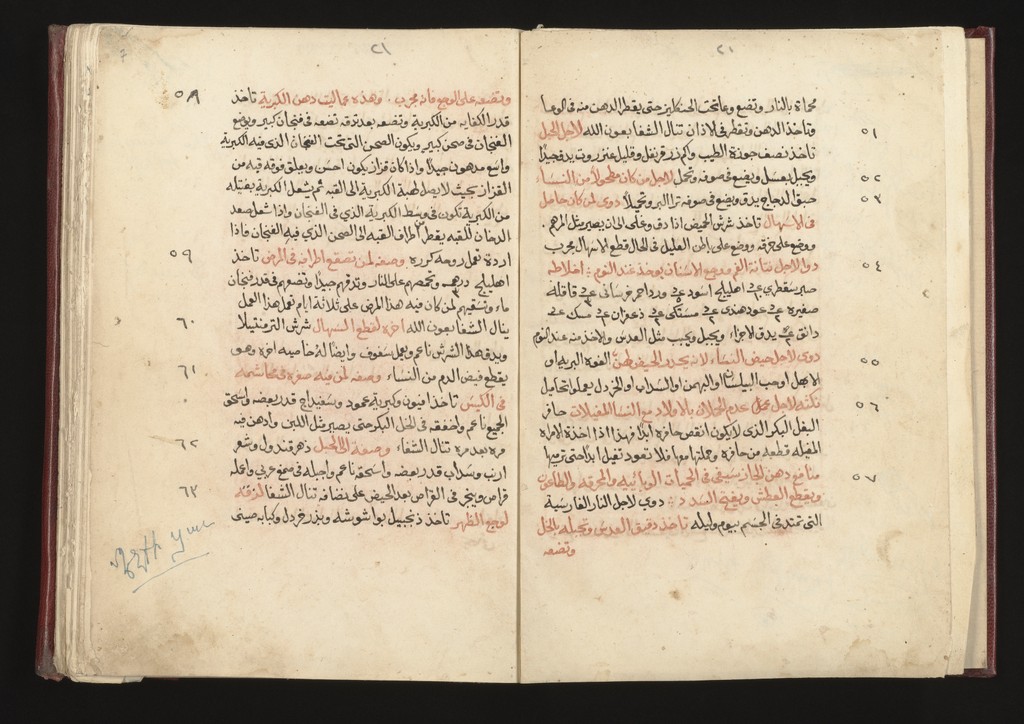 ٢٠
محماة بالنار وتضع وعا تحت الحنكليز حتى يقطر الدهن منه في الوعا
وتاخذ الدهن وتقطر في الاذان تنال الشفا بعون الله لاجل الحبل
٥١
تاخذ نصف جوزة الطيب وكم زر قرنفل وقليل عنزروت يدق جيدًا
ويجبل بعسل ويوضع في صوفه وتحمل لاجل من كان مطحولًا من النساء
٥٢
حبق الدجاج يدق ويضع في صوفه تراالبير وتحميلًا دوى لمن كان حامل
٥٣
في الاسهال تاخذ شرش الحميض اذا دق وغلى الى ان يصير مثل المرهم
ووضع على خرقه ووضع على بطن العليل في الحال قطع الاسهال مجرب
دوا لاجل نتانة الفم ووجع الاسنان يوخذ عند النوم اخلاطه
٥٤
صبر سقطري اهليلج اسود ورد احمر خرساني قاقلة
صغيره عود هندي مستكى زعفران مسك
دانق يدق الاجزاء ويجبل ويحبب مثل العدس والاخذ منه عند النوم
دوى لاجل حيض النساء لانه يحدر الحيض وطن الفوة البريه او
٥٥
الابهل او حب البيلسان او البهمن او السداب او الخردل يعملوا تحاميل
نكته لاجل عدم الحبلان بالاولاد مع النسا المغيلات حافر
٥٦
البغل البكر الذي لا يكون انقص حافره ابدًا فهذا اذا اخذة الامراه
المغيله قطعه من حافره وحملتها معها فلا تعود تغيل ابدًا حتى ترميها
منافع دهن الجاز يسقى في الحميات الوبائيه والمحرقه والطاعون
٥٧
ويقطع العطش ويفتح السدد دوى لاجل النار الفارسية
التي تمتد في الجسم بيوم وليله تاخذ دقيق العدس وتجبله بالخل
وتضعه
٢١
وتضعه على الوجع فانه مجرب وهذه عماليت دهن الكبرية تاخذ
٥٨
قدر الكفايه من الكبرية وتضعه بعد تدقه تضعه في فنجان كبير ويوضع
الفنجان في صحن كبير ويكون الصحن التي تحت الفنجان الذي فيه الكبرية
واسع مدهون جيدًا واذا كان قزاز يكون احسن ويعلق فوقه قبه من
القزاز بحيث لا يصل لهبة الكبرية الى القبه ثم يشعل الكبرية بفتيله
من الكبرية تكون في وسط الكبرية الذي في الفنجان واذا شعل صعد
الدخان للقبه يقطر من اطراف القبه الى الصحن الذي فيه الفنجان فاذا
اردة تعمل روحه كرره وصفه لمن تصقع اطرافه في المرض تاخذ
٥٩
اهليلج درهم وتحمصهم على النار وتدقهم جيدًا وتضعهم في قدر فنجان
ماء وتسقيهم لمن كان فيه هذا المرض على ثلاثة ايام تعمل هذا العمل
ينال الشفا بعون الله اخره لقطع السهال شرش الترمنتيلا
٦٠
ويدق هذا الشرش ناعم ويعمل سفوف وايضًا له خاصيه اخره وهو
يقطع فيض الدم من النساء وصفه لمن فيه صفره في
٦١
في الكيس تاخذ افيون وكبرية عمود وسفيداج قدر بعضه واسحق
الجميع ناعم واخفقه في الخل البكر حتى يصير مثل اللبن وادهن فيه
مره بعد مره تنال الشفاء وصفة الى الحبل زهر قندول وشعر
٦٢
ارنب وسداب قدر بعضه واسحقه ناعم واجبله في صمغ عربي واعمله
قراص وينجر في القراص بعد الحيض على نضافه تنال الشفا لدقه
٦٣
لوجع الظهر تاخذ زنجبيل بواشوشله وبذر خردل وكبابه صيني